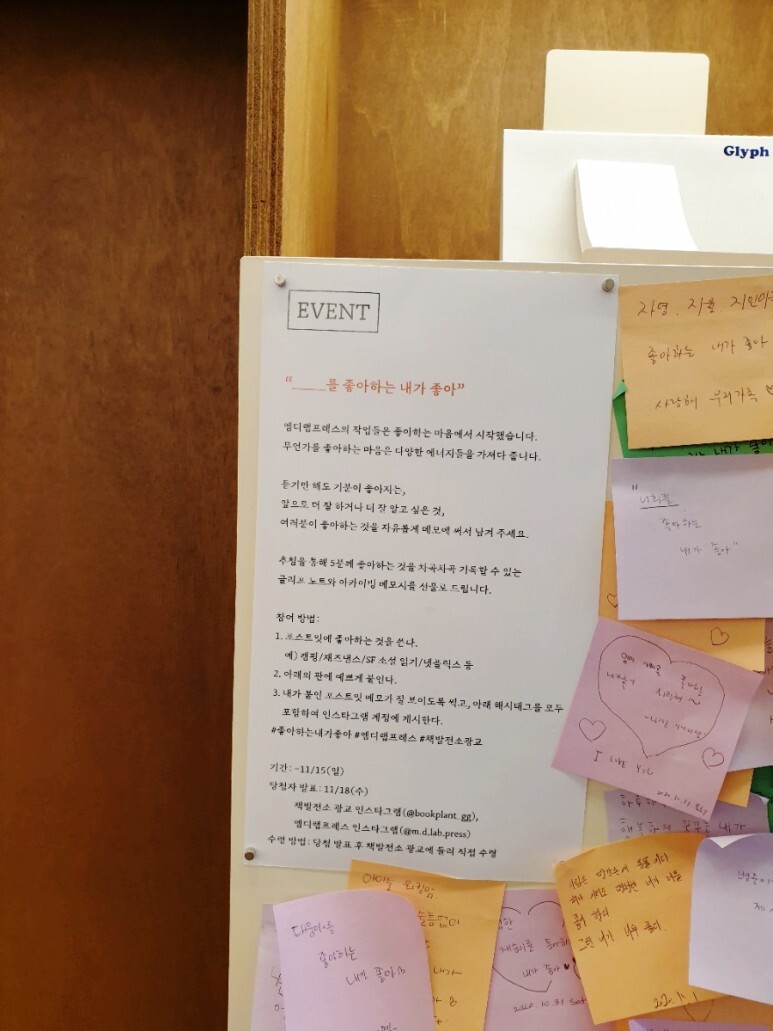 Glyph
EVENT
“____를 좋아하는 내가 좋아”
엠디랩프레스의 작업들은 좋아하는 마음에서 시작했습니다.
무언가를 좋아하는 마음은 다양한 에너지들을 가져다 줍니다.
듣기만 해도 기분이 좋아지는,
앞으로 더 잘 하거나 더 잘 알고 싶은 것,
여러분이 좋아하는 것을 자유롭게 메모에 써서 남겨 주세요.
추첨을 통해 5분께 좋아하는 것을 차곡차곡 기록할 수 있는
글리프 노트와 아카이빙 메모지를 선물로 드립니다.
참여 방법:
1. 포스트잇에 좋아하는 것을 쓴다.
예) 캠핑/재즈댄스/SF 소설 읽기/넷플릭스 등
2. 아래의 판에 예쁘게 붙인다.
3. 내가 붙인 포스트잇 메모가 잘 보이도록 찍고, 아래 해시태그를 모두
포함하여 인스타그램 계정에 게시한다.
#좋아하는내가좋아 #엠디랩프레스 #책발전소광교
기간: ~11/15(일)
당첨자 발표: 11/18(수)
책발전소 광교 인스타그램(@bookplant_gg),
엠디랩프레스 인스타그램(@m.d.lab.press)
수령 방법: 당첨 발표 후 책발전소 광교에 들러 직접 수령
자영. 지율. 지민이
좋아하는 내가 좋아
사랑해 우리가족
"너희를
좋아하는
내가 좋아"
I LIKE YOU
행복하게
내가
다음이를
좋아하는
내가 좋아
내가
내가 좋아
2020.10.31 Sat
그런 내가 너무 좋다.